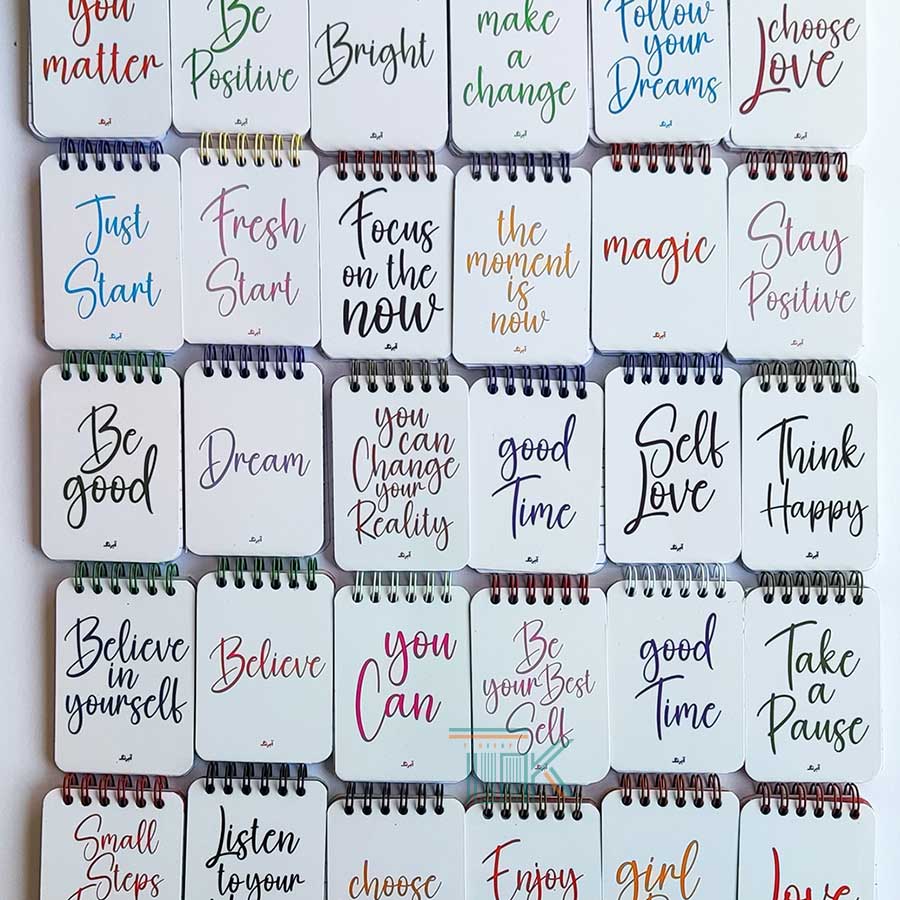 you
matter
Be
Positive
Bright
make
a
change
Follow
your
Dreams
choose
Love
Just
Start
Fresh
Start
Focus
on the
now
the
moment
is
now
magic
Stay
Positive
Be
good
Dream
you
can
Change
your
Reality
good
Time
Self
Love
Think
Happy
Believe
in
yourself
Believe
you
Can
Be
your Best
Self
good
Time
Take
a
Pause
Small
Steps
Listen
to your
choose
Enjoy
girl
Love